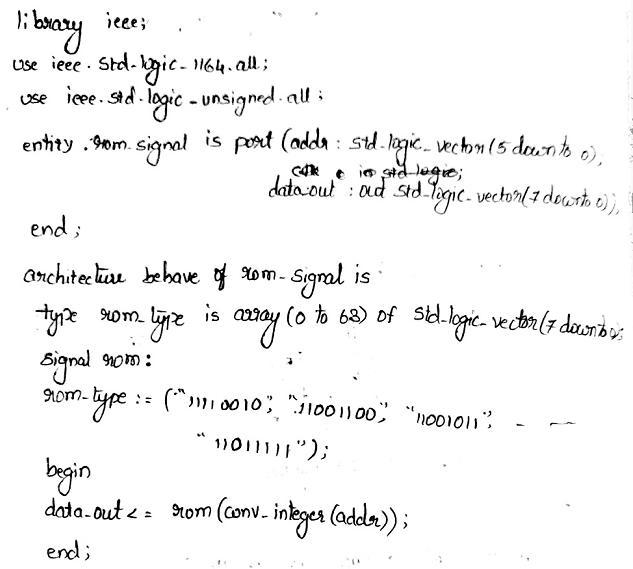 library ieee;
use ieee.std-logic-1164.all;
use ieee.std.logic-unsigned.all;
entity rom-signal is port (addr: std-logic-vector(5 downto 0),
clk : in std-logic;
data-out : out std-logic-vector(7 downto 0)),
end;
architecture behave of rom-signal is
type rom-type is array (0 to 63) of std-logic-vector(7 downto 0);
signal rom:
rom-type := ("11110010", "11001100", "11001011", - —
"11011111");
begin
data-out <= rom (conv-integer (addr));
end;